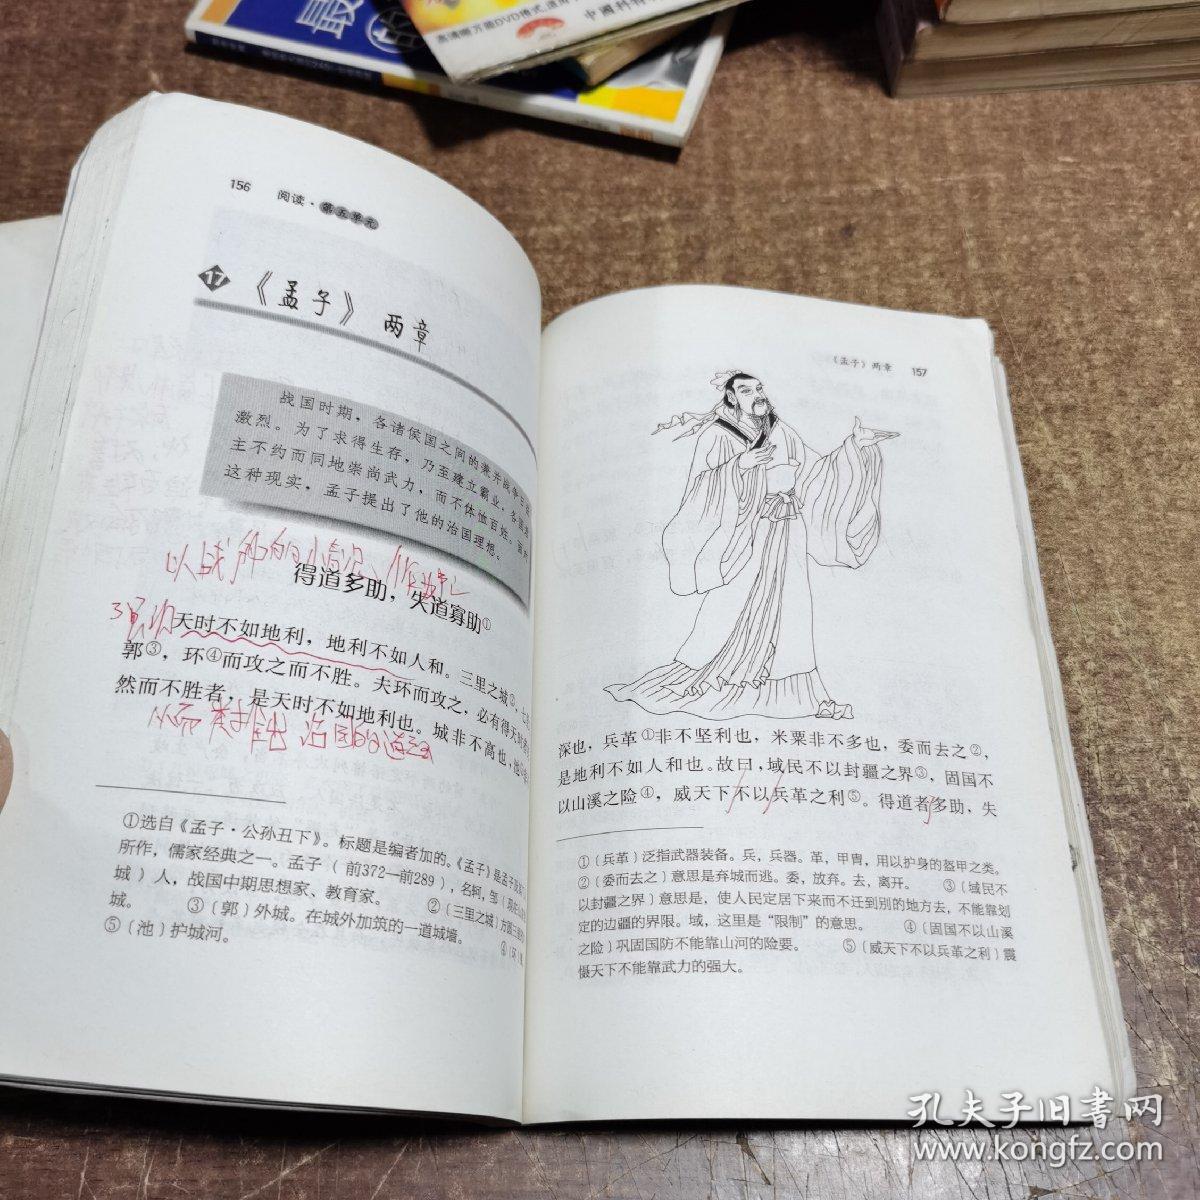 高清晰万能DVD格式,适用
中國科
156 阅读·第五单元
17 《孟子》两章
战国时期，各诸侯国之间的兼并战争日
激烈。为了求得生存，乃至建立霸业，各国君
主不约而同地崇尚武力，而不体恤百姓。面对
这种现实，孟子提出了他的治国理想。
得道多助，失道寡助①
天时不如地利，地利不如人和。三里之城②，七
郭③，环④而攻之而不胜。夫环而攻之，必有得天时者
然而不胜者，是天时不如地利也。城非不高也，池⑤
从而 推出 治国的道
①选自《孟子·公孙丑下》。标题是编者加的。《孟子》是孟子
所作，儒家经典之一。孟子（前372—前289），名轲，邹（现在
城）人，战国中期思想家、教育家。 ②〔三里之城〕方圆三里的
城。 ③〔郭〕外城。在城外加筑的一道城墙。 ④〔环〕
⑤〔池〕护城河。
《孟子》两章 157
深也，兵革①非不坚利也，米粟非不多也，委而去之②，
是地利不如人和也。故曰，域民不以封疆之界③，固国不
以山溪之险④，威天下不以兵革之利⑤。得道者多助，失
①〔兵革〕泛指武器装备。兵，兵器。革，甲胄，用以护身的盔甲之类。
②〔委而去之〕意思是弃城而逃。委，放弃。去，离开。 ③〔域民不
以封疆之界〕意思是，使人民定居下来而不迁到别的地方去，不能靠划
定的边疆的界限。域，这里是“限制”的意思。 ④〔固国不以山溪
之险〕巩固国防不能靠山河的险要。 ⑤〔威天下不以兵革之利〕震
慑天下不能靠武力的强大。
孔夫子旧书网
www.kongfz.com